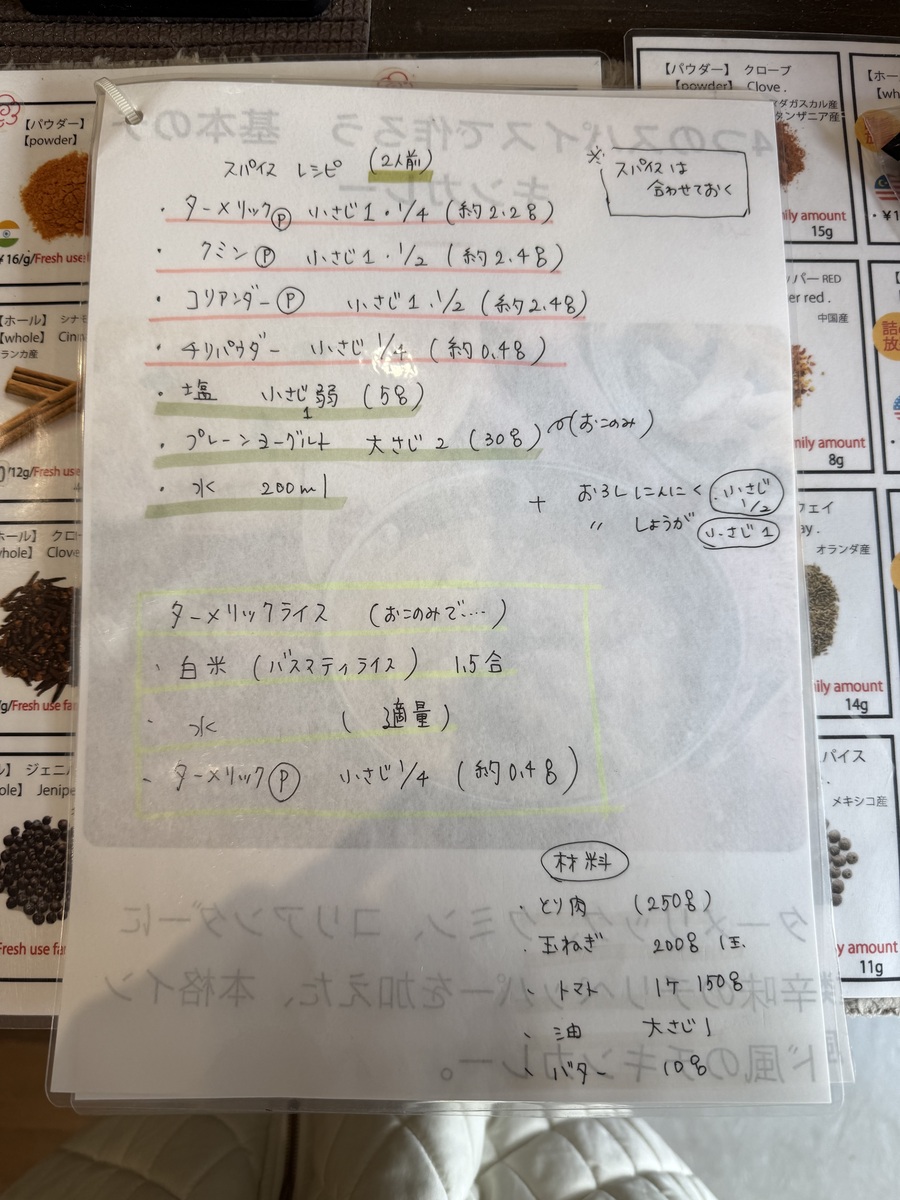 スパイス レシピ (2人前)
※ スパイスは
合わせておく
・ターメリックⓅ 小さじ1・1/4 (約2.2g)
・クミンⓅ 小さじ1・1/2 (約2.4g)
・コリアンダーⓅ 小さじ1・1/2 (約2.4g)
・チリパウダー 小さじ1/4 (約0.4g)
・塩 小さじ1弱 (5g)
・プレーンヨーグルト 大さじ2 (30g) (おこのみ)
・水 200ml
+ おろしにんにく 小さじ1/2
〃 しょうが 小さじ1
ターメリックライス (おこのみで…)
・白米 (バスマティライス) 1.5合
・水 (適量)
・ターメリックⓅ 小さじ1/4 (約0.4g)
材料
・とり肉 (250g)
・玉ねぎ 200g 1玉
・トマト 1ケ 150g
・油 大さじ1
・バター 10g
4つのスパイスで作ろう 基本のチ
キンカレー
ターメリック、クミン、コリアンダーに
辛味のチリペッパーを加えた、本格イン
ド風のチキンカレー。
【パウダー】
【powder】
¥16/g/Fresh use
【ホール】 シナモ
【whole】 Cinn
ランカ産
/12g/Fresh use
ホール】 クロー
whole】 Clove
/g/Fresh use far
】 ジェニ
ole】 Jenipe
Fresh use fa
【パウダー】 クローブ
【powder】 Clove .
マダガスカル産
タンザニア産
ily amount
15g
【ホー
【wh
ッパー RED
er red .
中国産
mily amount
8g
ウェイ
ay .
オランダ産
ily amount
14g
パイス
メキシコ産
y amount
11g